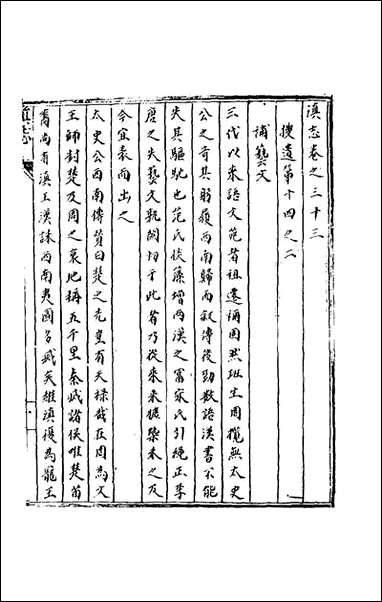 滇志卷之三十三
搜遺第十四之二
補藝文
三代以來語文苑者祖遷禰固然班生周攬無太史
公之奇其躬履西南歸而叙傳後勁數語漢書不能
失其驅馳也范氏摛藻增西漢之富宋氏引繩正李
唐之失藝文既闕切于此者乃從來未摭槩未之及
今宜表而出之
太史公西南傳贊曰楚之先豈有天祿哉在周為文
王師封楚及周之衰地稱五千里秦滅諸侯唯楚苗
裔尚有滇王漢誅西南夷國多滅矣雖滇復為寵王